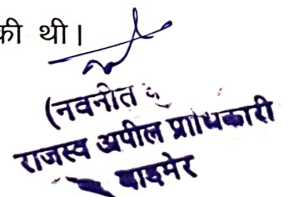 की थी।
(नवनीत
राजस्व अपील प्राधिकारी
बाड़मेर